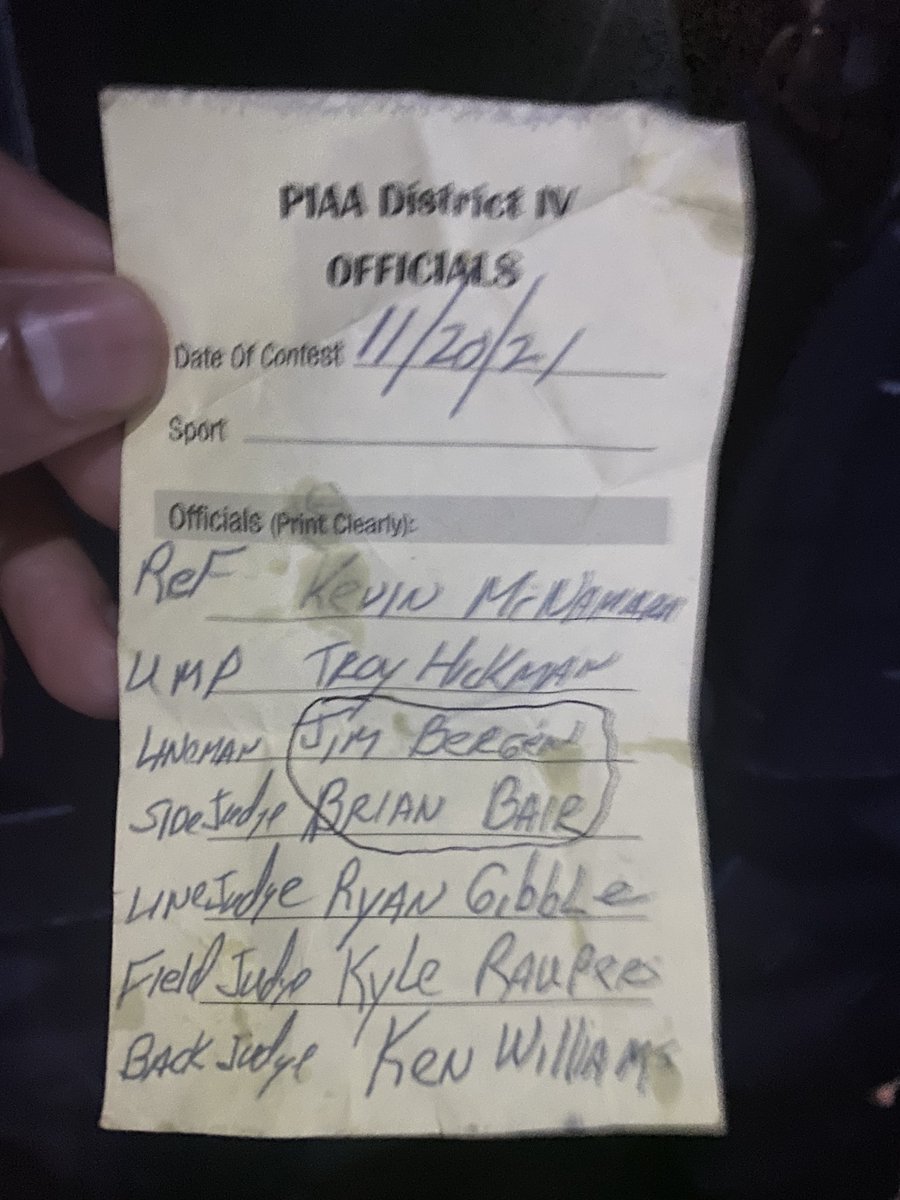 PIAA District IV
OFFICIALS
Date Of Contest 11/20/21
Sport
Officials (Print Clearly):
ReF Kevin McNamara
UMP Troy Hickman
LINEMAN Jim Bergen
SIDE Judge BRIAN BAIR
LINE Judge RYAN GibbLe
Field Judge Kyle RAUPERS
BACK Judge Ken Williams